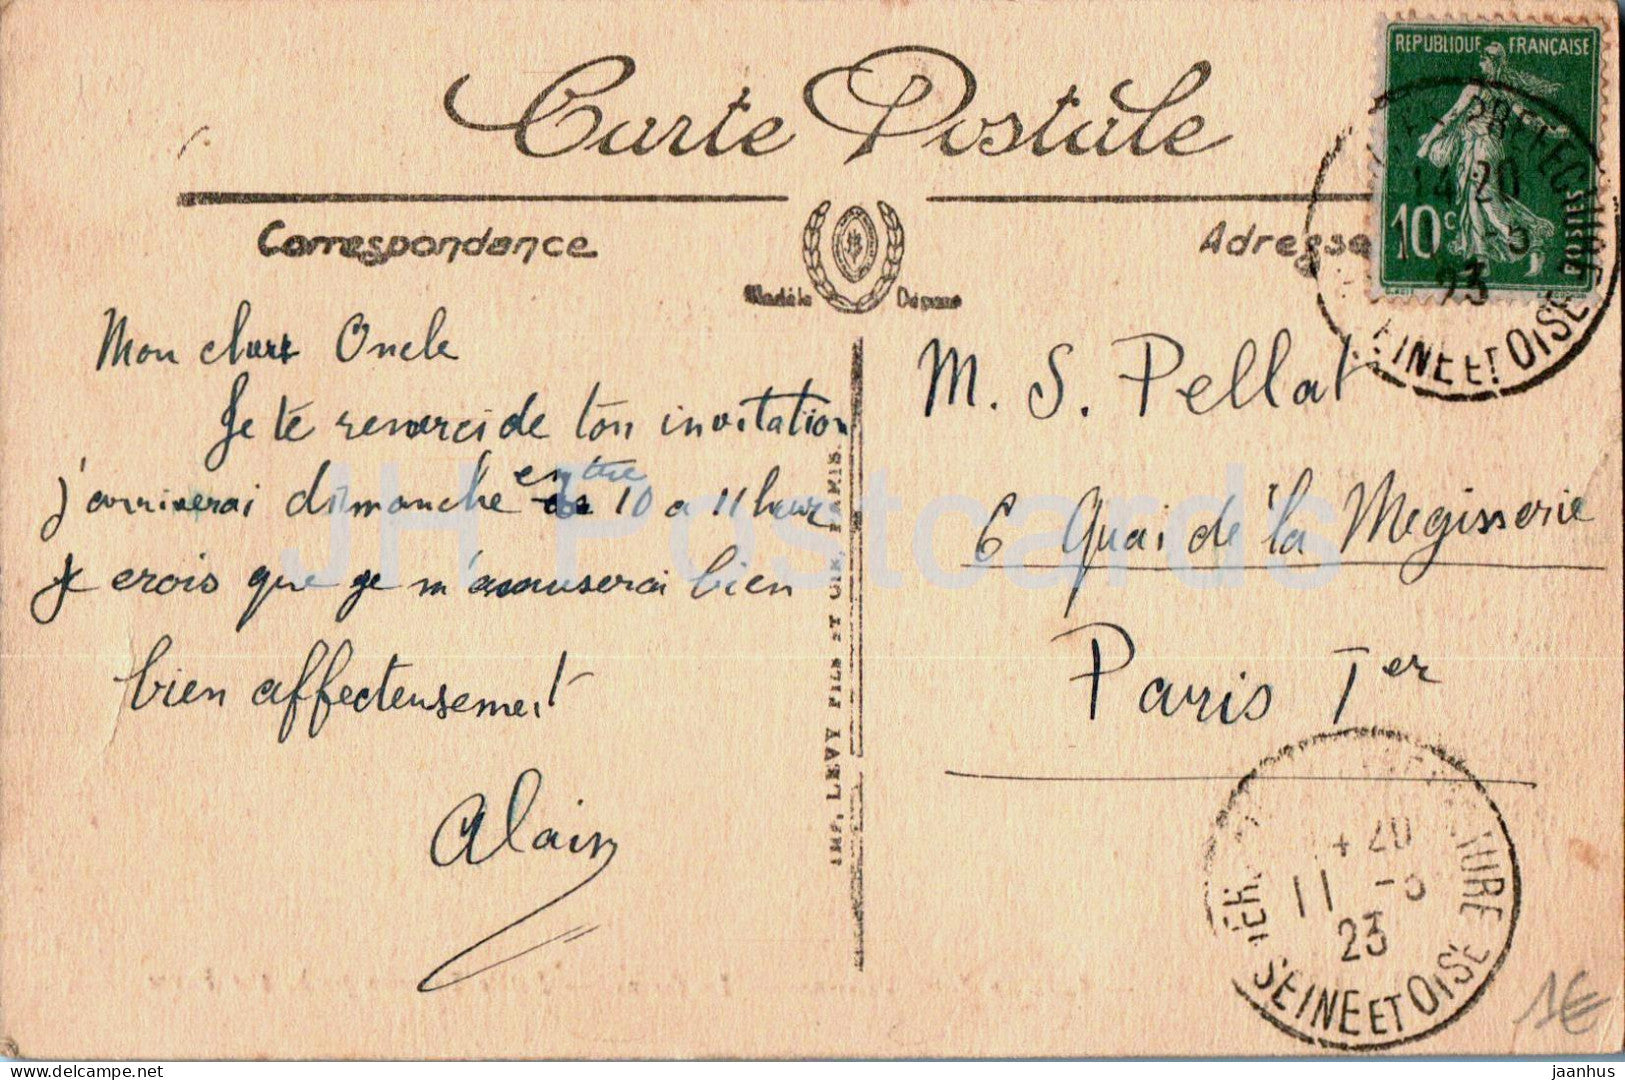 Carte Postale
Correspondance
Adresse
Modèle Déposé
REPUBLIQUE FRANÇAISE
10c
PREFECTURE
14 20
-5
23
SEINE ET OISE
Mon cher Oncle
Je te remerci de ton invitation
j'arriverai dimanche entre 10 a 11 heur
je crois que je m'amuserai bien
bien affecteusement
Alain
IMP. LEVY FILS ET CIE, PARIS.
M. S. Pellat
6 Quai de la Megisserie
Paris 1er
20
11 -5
23
SEINE ET OISE
1€
JH Postcards
delcampe.net
jaanhus